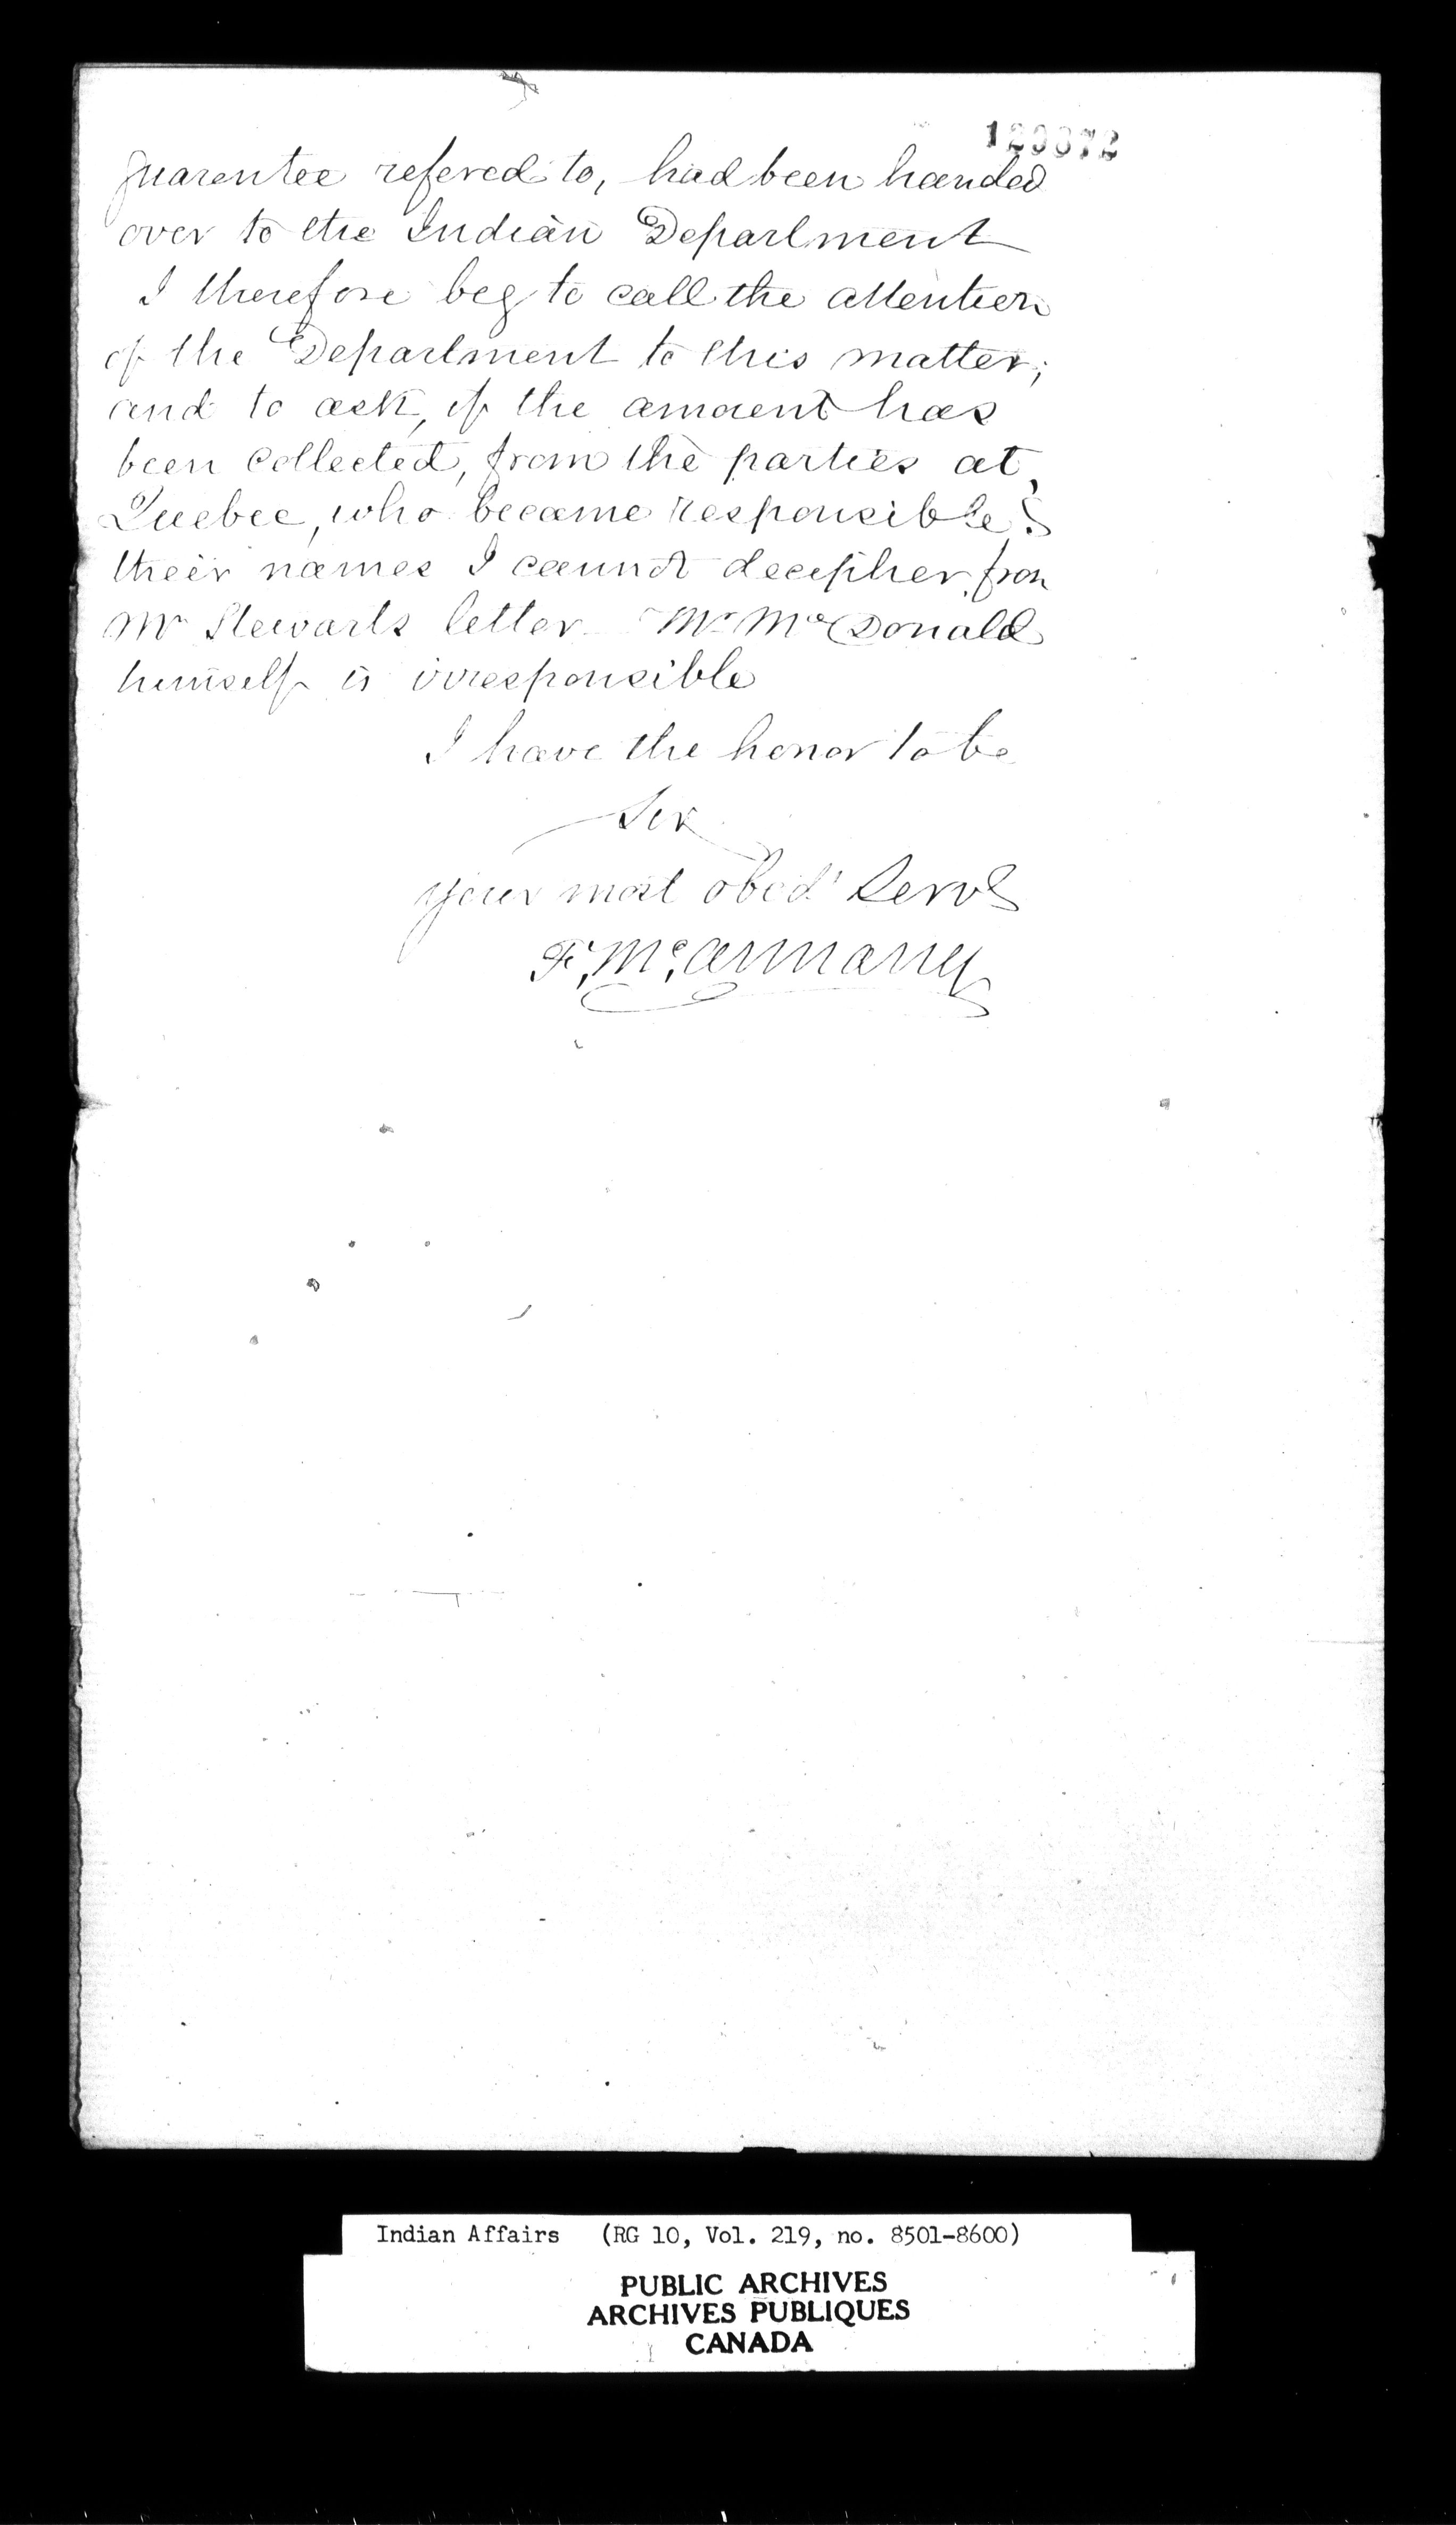 guarentee refered to, had been handed
over to the Indian Department
I therefore beg to call the attention
of the Department to this matter;
and to ask, if the amount has
been collected, from the parties at
Quebec, who became responsible?
their names I cannot decipher from
Mr Stewarts letter Mr McDonald
himself is irresponsible
I have the honor to be
Sir
your most obed't Servt
F. Mc.
Indian Affairs (RG 10, Vol. 219, no. 8501-8600)
PUBLIC ARCHIVES
ARCHIVES PUBLIQUES
CANADA